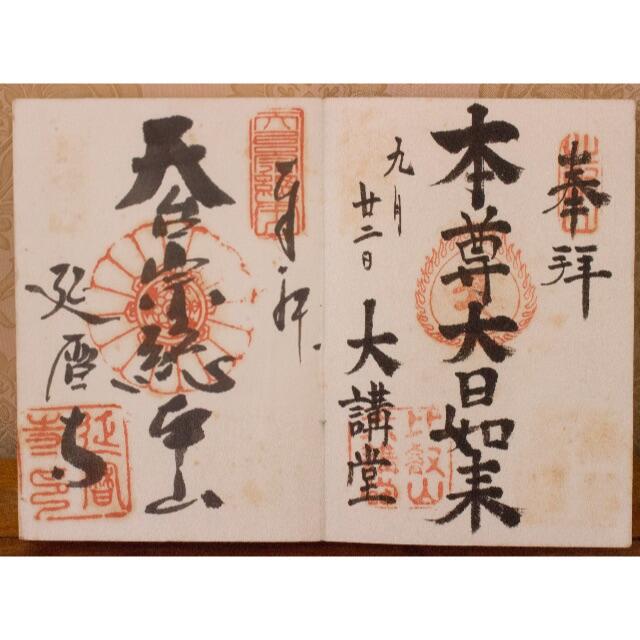 奉拝
本尊大日如来
九月廿二日
大講堂
奉拝
天台宗総本山
延暦寺
比叡山
延暦